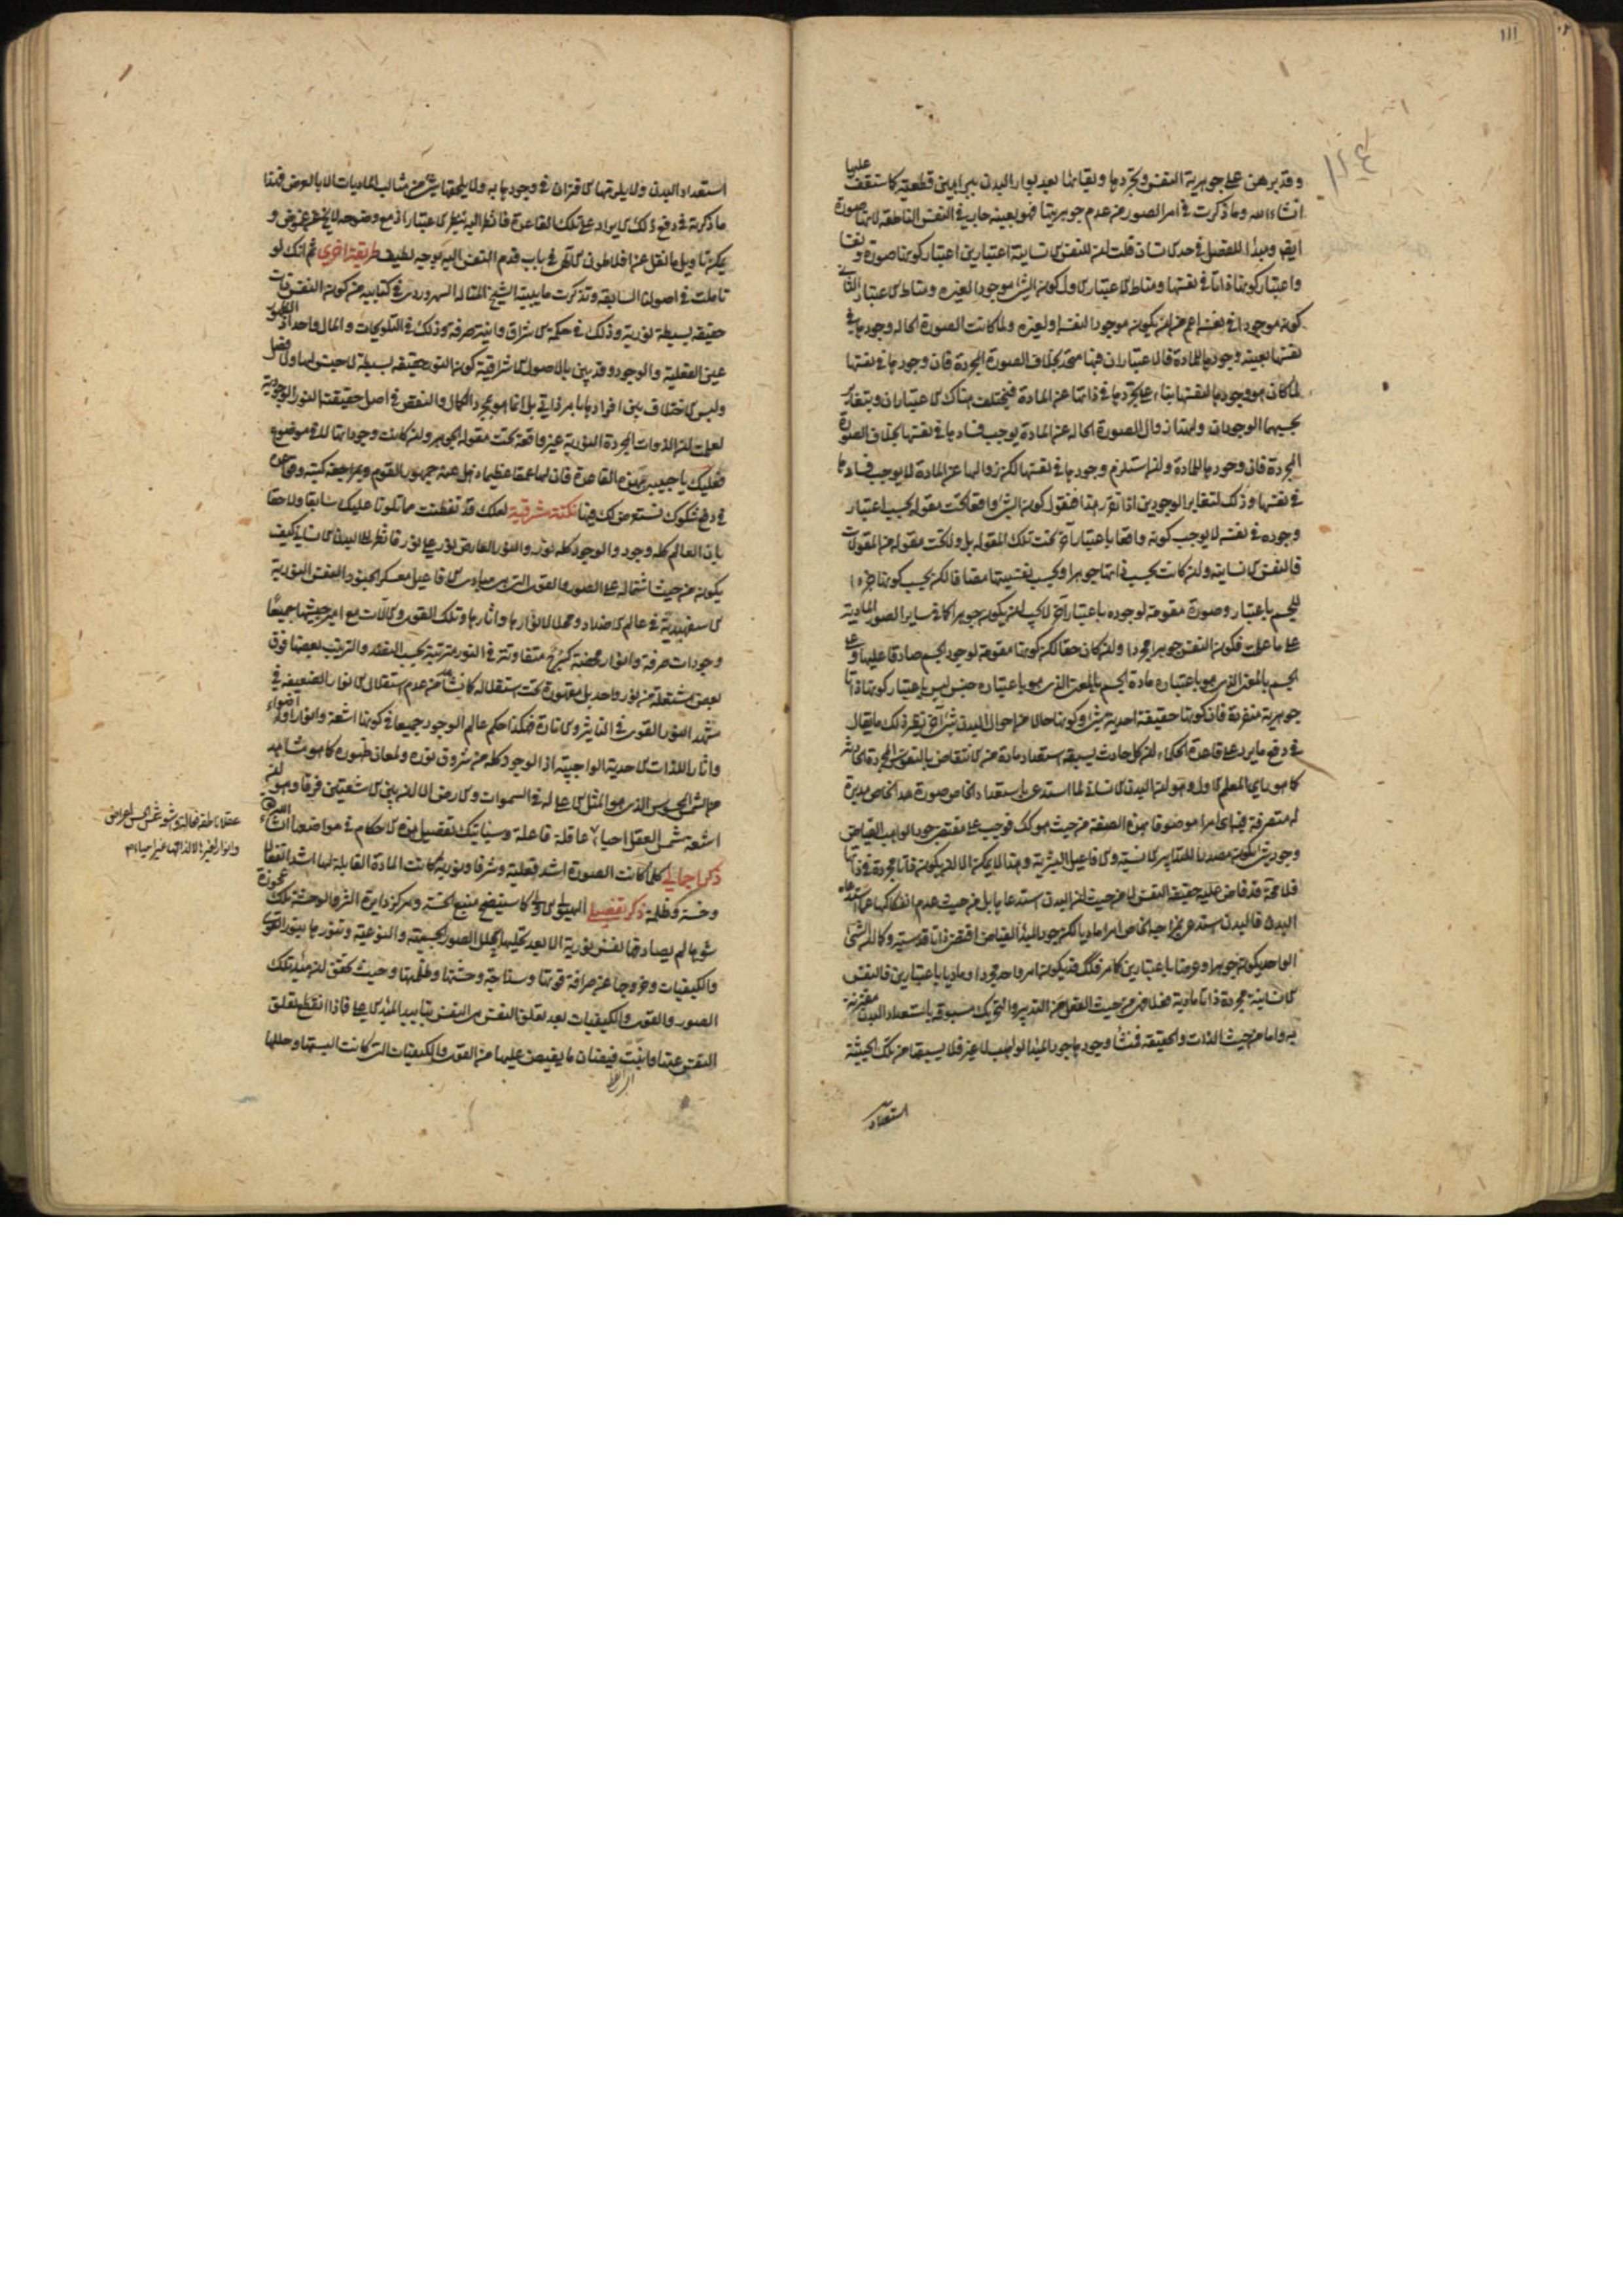 ١١١
وقد برهن على جوهرية النفس وتجردها وبقائها بعد بوار البدن ببراهين قطعية كما ستقف عليها
انشاء الله وما ذكرت في امر الصور من عدم جوهريتها فهو بعينه جار في النفس الناطقة لانها صورة
ايضا ومبدأ للفصل في حد الانسان قلت لنفس الانسانية اعتبارين اعتبار كونها صورة ونفسا
واعتبار كونها ذاتا في نفسها ومناط الاعتبار الاول كون الشئ موجودا لغيره ومناط الاعتبار الثاني
كونه موجودا في نفسه اعم من ان يكون موجودا لنفسه او لغيره ولما كانت الصورة الحالة وجودها في
نفسها بعينه وجودها للمادة فالاعتباران هنا متحد بخلاف الصورة المجردة فان وجودها في نفسها
لما كان هو وجودها لنفسها بناء على تجردها في ذاتها عن المادة فيختلف هناك الاعتباران ويتغاير
بحسبهما الوجودان ولهذا زوال الصورة الحالة عن المادة يوجب فسادها في نفسها بخلاف الصورة
المجردة فان وجودها للمادة وان استلزم وجودها في نفسها لكن زوالها عن المادة لا يوجب فسادها
في نفسها وذلك لتغاير الوجودين اذا تقرر هذا فنقول كون الشئ واقعا تحت مقولة بحسب اعتبار
وجوده في نفسه لا يوجب كونه واقعا باعتبار آخر تحت تلك المقولة بل ولا تحت مقولة من المقولات
فالنفس الانسانية وان كانت بحسب ذاتها جوهرا وبحسب نفسيتها مضافا لكن بحسب كونها جزءا
للجسم باعتبار وصورة مقومة لوجوده باعتبار آخر لا يجب ان يكون جوهرا كما في ساير الصور المادية
على ما علمت فكون النفس جوهرا مجردا وان كان حقا لكن كونها مقومة لوجود الجسم صادقا عليها
الجسم بالمعنى الذي هو باعتباره مادة الجسم بالمعنى الذي هو باعتباره جنس ليس باعتبار كونها ذاتا
جوهرية منفردة فان كونها حقيقة احدية شئ وكونها حالا من احوال البدن شئ آخر نظير ذلك ما يقال
في دفع ما يرد على قاعدة الحكماء ان كل حادث يسبقه استعداد مادة من الانتقاض بالنفوس المجردة الحادثة
كما هو رأى المعلم الاول وهو ان البدن الانسانى لما استدعى باستعداده الخاص صورة مدبرة
له متصرفة فيه اى امرا موصوفا بهذه الصفة من حيث هو كك فوجب على مقتضى جود الواهب الفياض
وجود شئ يكون مصدرا للتدابير الانسية والافاعيل البشرية وهذا لا يمكن الا ان يكون ذاتا مجردة في ذاتها
فلا محة قد فاض عليه حقيقة النفس لا من حيث ان البدن استدعاها بل من حيث عدم انفكاكها عما استدعاه
البدن فالبدن استدعى بمزاجه الخاص امرا ماديا لكن جود المبدأ الفياض اقتضى ذاتا قدسية وكما ان الشئ
الواحد يكون جوهرا وعرضا باعتبارين كما مر فكك قد يكون امر واحد مجردا وماديا باعتبارين فالنفس
الانسانية مجردة ذاتا مادية فعلا فهى من حيث الفعل من التدبير والتحريك مسبوقة باستعداد البدن مقترنة
به واما من حيث الذات والحقيقة فمنشأ وجودها جود المبدأ الواهب لا غير فلا يسبقها من تلك الحيثية
استعداد
استعداد البدن ولا يلزمها الاقتران في وجودها به ولا يلحقها شئ من مثالب الماديات الا بالعرض فهذا
ما ذكرته في دفع ذلك الايراد على تلك القاعدة فانظر اليه بنظر الاعتبار اذ مع وضوحه لا يخلو عن غموض و
يمكن تأويل ما نقل عن افلاطون الالهى في باب قدم النفس اليه بوجه لطيف طريقة اخرى ثم انك لو
تأملت في اصولنا السابقة وتذكرت ما بينه الشيخ المتأله السهروردى في كتابيه من كون النفس ذات
حقيقة بسيطة نورية وذلك في حكمة الاشراق وانية صرفة وذلك في التلويحات والمآل واحد اذ الظهور
عين الفعلية والوجود وقد بين بالاصول الاشراقية كون النور حقيقة بسيطة لا جنس لها ولا فصل
وليس الاختلاف بين افرادها بامر ذاتى بل انما هو بمجرد الكمال والنقص في اصل حقيقة النور الوجودية
لعلمت ان الذوات المجردة النورية غير واقعة تحت مقولة الجوهر وان كانت وجوداتها لا في موضوع
فعليك يا حبيبى بهذه القاعدة فان لها عمقا عظيما ذهل عنه جمهور القوم وبمراجعة كتبه وقواعده
في دفع شكوك تستعرض لك هنا نكتة مشرقية لعلك قد تفطنت مما تلونا عليك سابقا ولاحقا
بان العالم كله وجود والوجود كله نور والنور العارض نور على نور فانظر الى البدن الانسانى كيف
يكون من حيث اشتماله على الصور والقوى التى هى مبادى الافاعيل معسكر الجنود النفس النورية
الاسفهبدية في عالم الاضداد ومحلا لانوارها وآثارها وتلك القوى والآلات مع اميرجيشها جميعا
وجودات صرفة وانوار محضة متفاوتة في النور مترتبة بحسب التقدم والترتيب بعضها فوق
بعض مشتعلة من نور واحد بل مقهورة تحت استقلاله كما نشأ من عدم استقلال الانوار الضعيفة في
مشهد النور القوى في التأثير والانارة فهكذا حكم عالم الوجود جميعا في كونها اشعة وانوارا واضواء
وآثارا للذات الاحدية الواجبية اذ الوجود كله من شروق نوره ولمعان ظهوره كما هو مشاهد
من الشمس المحسوس الذى هو المثل الاعلى له في السموات والارض الا ان بين الاشعتين فرقا وهو ان
اشعة شمس العقل احياء عاقلة فاعلة وسيأتيك تفصيل هذه الاحكام في مواضعها انشاء الله
ذكر اجمالى كلما كانت الصورة اشد فعلية وشرفا ونورية كانت المادة القابلة لها اشد انفعالا
وخسة وظلمة ذكر تفصيلى الهيولى الاولى كما سيتضح منبع الخسة ومركز دايرة الشر والوحشة تلك عجوزة
شوهاء لم يصادفها نفس نورية الا بعد تحليها بحلل الصور الجسمية والنوعية وتنورها بنور القوى
والكيفيات وخروجها عن صرافة قوتها وسذاجة وحشتها وظلمتها وحيث تحقق ان مبدأ تلك
الصور والقوى والكيفيات بعد تعلق النفس هى النفس بتأييد المبدأ الاعلى فاذا انقطع تعلق
النفس عنها وانبت فيضان ما يفيض عليها من القوى والكيفيات التى كانت البستها وحللها
عقلا ناطقة فعالة وشعشعة شمس الحس اعراض
وانوار لغيرها لا لذاتها غير احياء